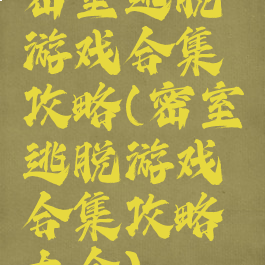 密室逃脱
游戏合集
攻略(密室
逃脱游戏
合集攻略
大全)